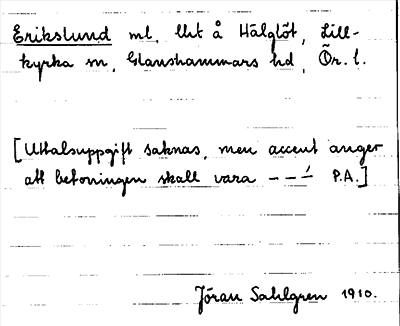 Erikslund ml. lht å Hälgtöt, Lill-
kyrka sn, Glanshammars hd, Ör. l.
[Uttalsuppgift saknas, men accent anger
att betoningen skall vara – – –́ P.A.]
Jöran Sahlgren 1910.